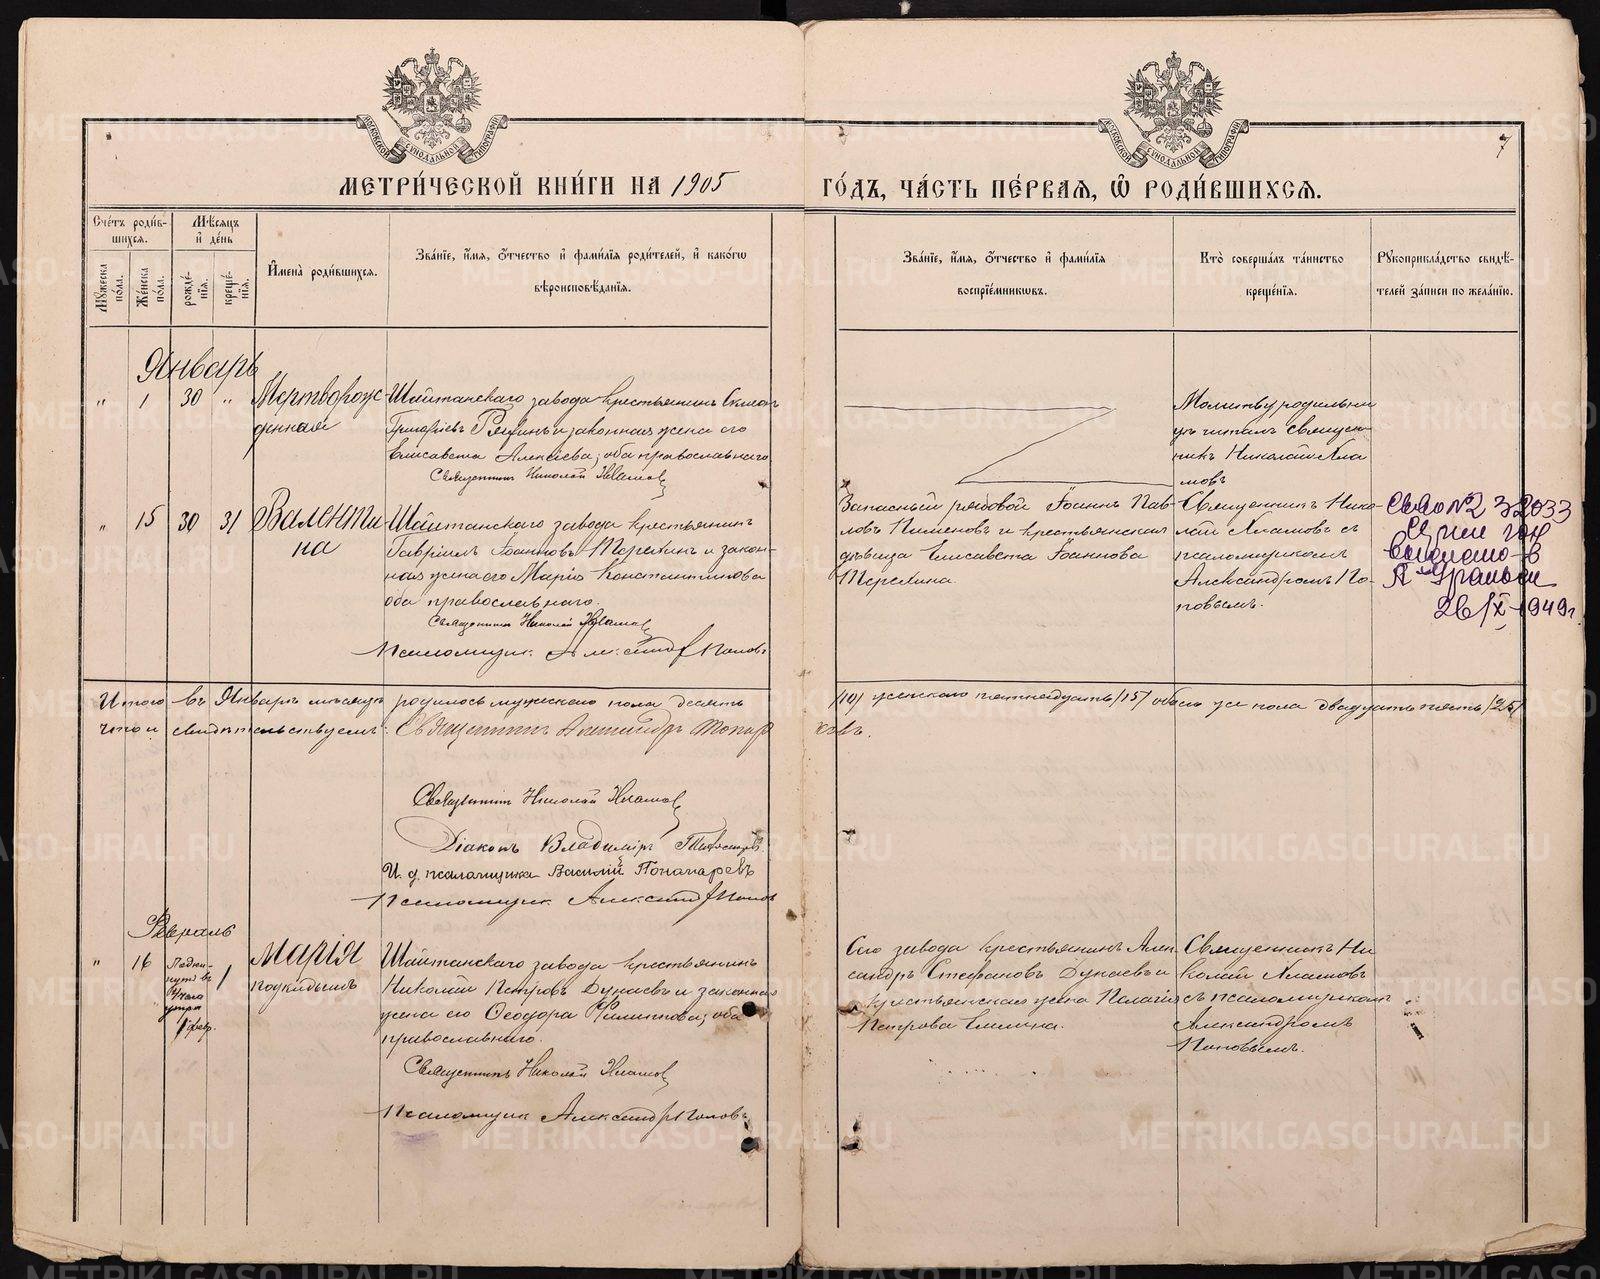 МОСКОВСКОЙ СѴНОДАЛЬНОЙ ТИПОГРАФІИ
МОСКОВСКОЙ СѴНОДАЛЬНОЙ ТИПОГРАФІИ
7
МЕТРИ́ЧЕСКОЙ КНИ́ГИ НА 1905 ГО́ДЪ, ЧА́СТЬ ПЕ́РВАЯ, Ѽ РОДИ́ВШИХСЯ.
Сче́тъ роди́в-
шихся.
Мѣ́сяцъ
и҆ де́нь
Мꙋ́жеска по́ла.
Же́нска по́ла.
рожде́-
нїя.
креще́-
нїя.
И҆мена̀ роди́вшихся.
Зва́нїе, и҆́мя, ѻ҆́тчество и҆ фами́лїя роди́телей, и҆ како́гѡ
вѣроисповѣ́данїя.
Зва́нїе, и҆́мя, ѻ҆́тчество и҆ фами́лїя
воспрїе́мникѡвъ.
Кто̀ соверша́лъ та́инство
креще́нїя.
Рꙋкоприкла́дство свидѣ́-
телей за́писи по жела́нїю.
Январь
" 1 30 "
Мертворож-
денная
Шайтанскаго завода крестьянинъ
Григорьевъ и законная жена его
Елисавета Алексіева, оба православнаго
Священникъ Николай
Молитву родильни
цѣ читалъ священ-
никъ Николай Хла
мовъ
" 15 30 31
Валенти
на
Шайтанскаго завода крестьянинъ
Гавріилъ Іоанновъ Терехинъ и закон-
ная жена его Марія Константинова
оба православнаго.
Священникъ Николай
Псаломщик Александр Попов
Запасный рядовой Іоаннъ Пав-
ловъ Пименовъ и крестьянская
дѣвица Елисавета Іоаннова
Терехина.
Священникъ Нико-
лай Хламовъ съ
псаломщикомъ
Александромъ По-
повымъ.
№2 32033
26/X-1949 г.
Итого въ Январѣ мѣсяцѣ родилось мужескаго пола десять /10/ женскаго пятнадцать /15/ обоего же пола двадцать пять /25/
что и свидѣтельствуемъ: Священникъ Александръ Топорковъ.
Священникъ Николай
Діаконъ Владиміръ
И. д. псаломщика Василій Пономаревъ
Псаломщик Александр Попов
Февраль
" 16
Подки-
нутъ въ
утра
1 февр.
1
Марія
подкидышъ
Шайтанскаго завода крестьянинъ
Николай Петровъ Дунаевъ и законная
жена его Ѳеодора Филиппова, оба
православнаго.
Священникъ Николай
Псаломщик Александр Поповъ
Сего завода крестьянинъ Алек
сандръ Стефановъ Дунаевъ и
крестьянская жена Пелагія
Петрова Емлина.
Священникъ Ни
колай Хламовъ
съ псаломщикомъ
Александромъ
Поповымъ.
METRIKI.GASO-URAL.RU